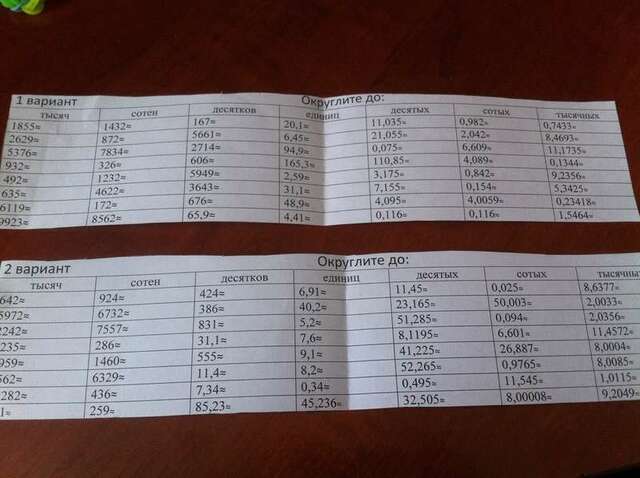 1 вариант Округлите до:
тысяч сотен десятков единиц десятых сотых тысячных
1855≈ 1432≈ 167≈ 20,1≈ 11,035≈ 0,982≈ 0,7433≈
2629≈ 872≈ 5661≈ 6,45≈ 21,055≈ 2,042≈ 8,4693≈
5376≈ 7834≈ 2714≈ 94,9≈ 0,075≈ 6,609≈ 11,1735≈
932≈ 326≈ 606≈ 165,3≈ 110,85≈ 4,089≈ 0,1344≈
492≈ 1232≈ 5949≈ 2,59≈ 3,175≈ 0,842≈ 9,2356≈
635≈ 4622≈ 3643≈ 31,1≈ 7,155≈ 0,154≈ 5,3425≈
6119≈ 172≈ 676≈ 48,9≈ 4,095≈ 4,0059≈ 0,23418≈
9923≈ 8562≈ 65,9≈ 4,41≈ 0,116≈ 0,116≈ 1,5464≈
2 вариант Округлите до:
тысяч сотен десятков единиц десятых сотых тысячных
642≈ 924≈ 424≈ 6,91≈ 11,45≈ 0,025≈ 8,6377≈
5972≈ 6732≈ 386≈ 40,2≈ 23,165≈ 50,003≈ 2,0033≈
2242≈ 7557≈ 831≈ 5,2≈ 51,285≈ 0,094≈ 2,0356≈
235≈ 286≈ 31,1≈ 7,6≈ 8,1195≈ 6,601≈ 11,4572≈
959≈ 1460≈ 555≈ 9,1≈ 41,225≈ 26,887≈ 8,0004≈
562≈ 6329≈ 11,4≈ 8,2≈ 52,265≈ 0,9765≈ 8,0085≈
282≈ 436≈ 7,34≈ 0,34≈ 0,495≈ 11,545≈ 1,0115≈
1≈ 259≈ 85,23≈ 45,236≈ 32,505≈ 8,00008≈ 9,2049≈